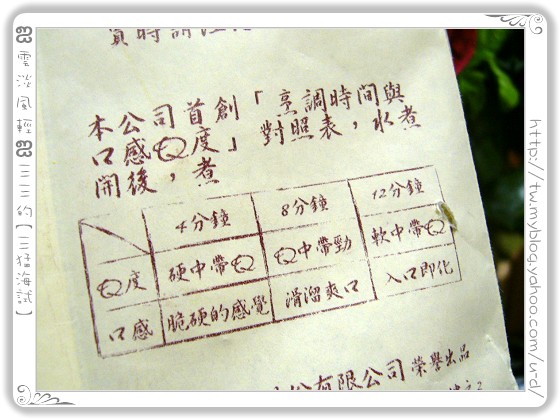 本公司首創「烹調時間與
口感Q度」對照表，水煮
開後，煮
4分鐘 8分鐘 12分鐘
Q度 硬中帶Q Q中帶勁 軟中帶Q
口感 脆硬的感覺 滑溜爽口 入口即化
有限公司 榮譽出品
雲淡風輕 三三三的【三猛海試】
http://tw.myblog.yahoo.com/u-d/